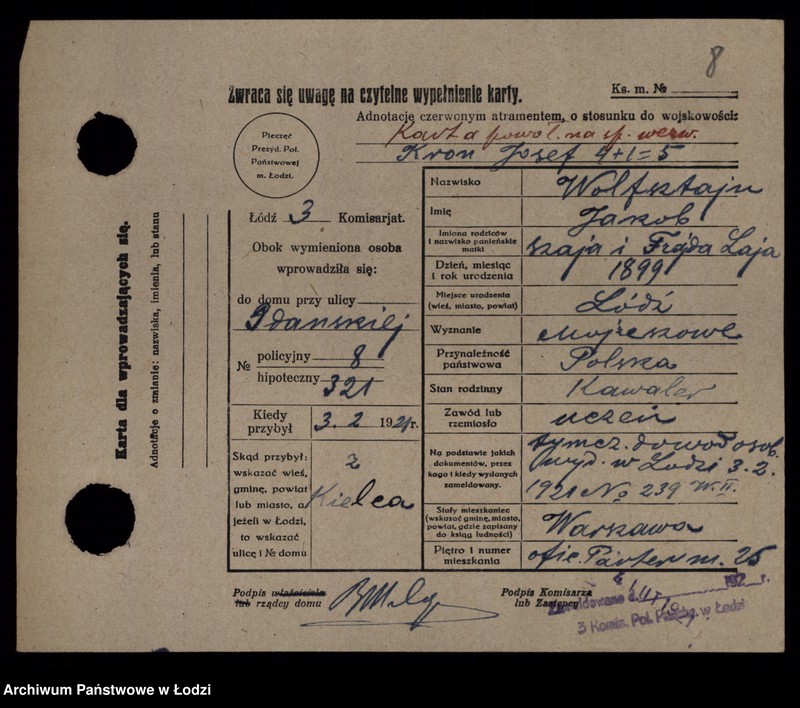 8
Zwraca się uwagę na czytelne wypełnienie karty.
Ks. m. №
Adnotacje czerwonym atramentem, o stosunku do wojskowości:
Karta powoł. na sp. werw.
Kron Josef 4+1=5
Pieczęć
Prezyd. Pol.
Państwowej
m. Łodzi.
Karta dla wprowadzających się.
Adnotacje o zmianie: nazwiska, imienia, lub stanu
Łódź 3 Komisarjat.
Obok wymieniona osoba
wprowadziła się:
do domu przy ulicy
Gdańskiej
№ policyjny 8
hipoteczny 321
Kiedy przybył 3. 2 1921 r.
Skąd przybył:
wskazać wieś,
gminę, powiat
lub miasto, a
jeżeli w Łodzi,
to wskazać
ulicę i № domu
z
Kielca
Nazwisko Wolfsztajn
Imię Jakob
Imiona rodziców
i nazwisko panieńskie
matki
Szaja i Frajda Laja
Dzień, miesiąc
i rok urodzenia
1899
Miejsce urodzenia
(wieś, miasto, powiat)
Łódź
Wyznanie mojżeszowe
Przynależność
państwowa
Polska
Stan rodzinny Kawaler
Zawód lub
rzemiosło
uczeń
Na podstawie jakich
dokumentów, przez
kogo i kiedy wydanych
zameldowany.
tymcz. dowod osob.
wyd. w Łodzi 3. 2.
1921 No 239 W. II.
Stały mieszkaniec
(wskazać gminę, miasto,
powiat, gdzie zapisany
do ksiąg ludności)
Warszawa
Piętro i numer
mieszkania
ofic. Parter m. 25
Podpis właściciela
lub rządcy domu
Podpis Komisarza
lub Zastępcy
Zameldowano d. 192 r.
3 Komis. Pol. Państw. w Łodzi
Archiwum Państwowe w Łodzi